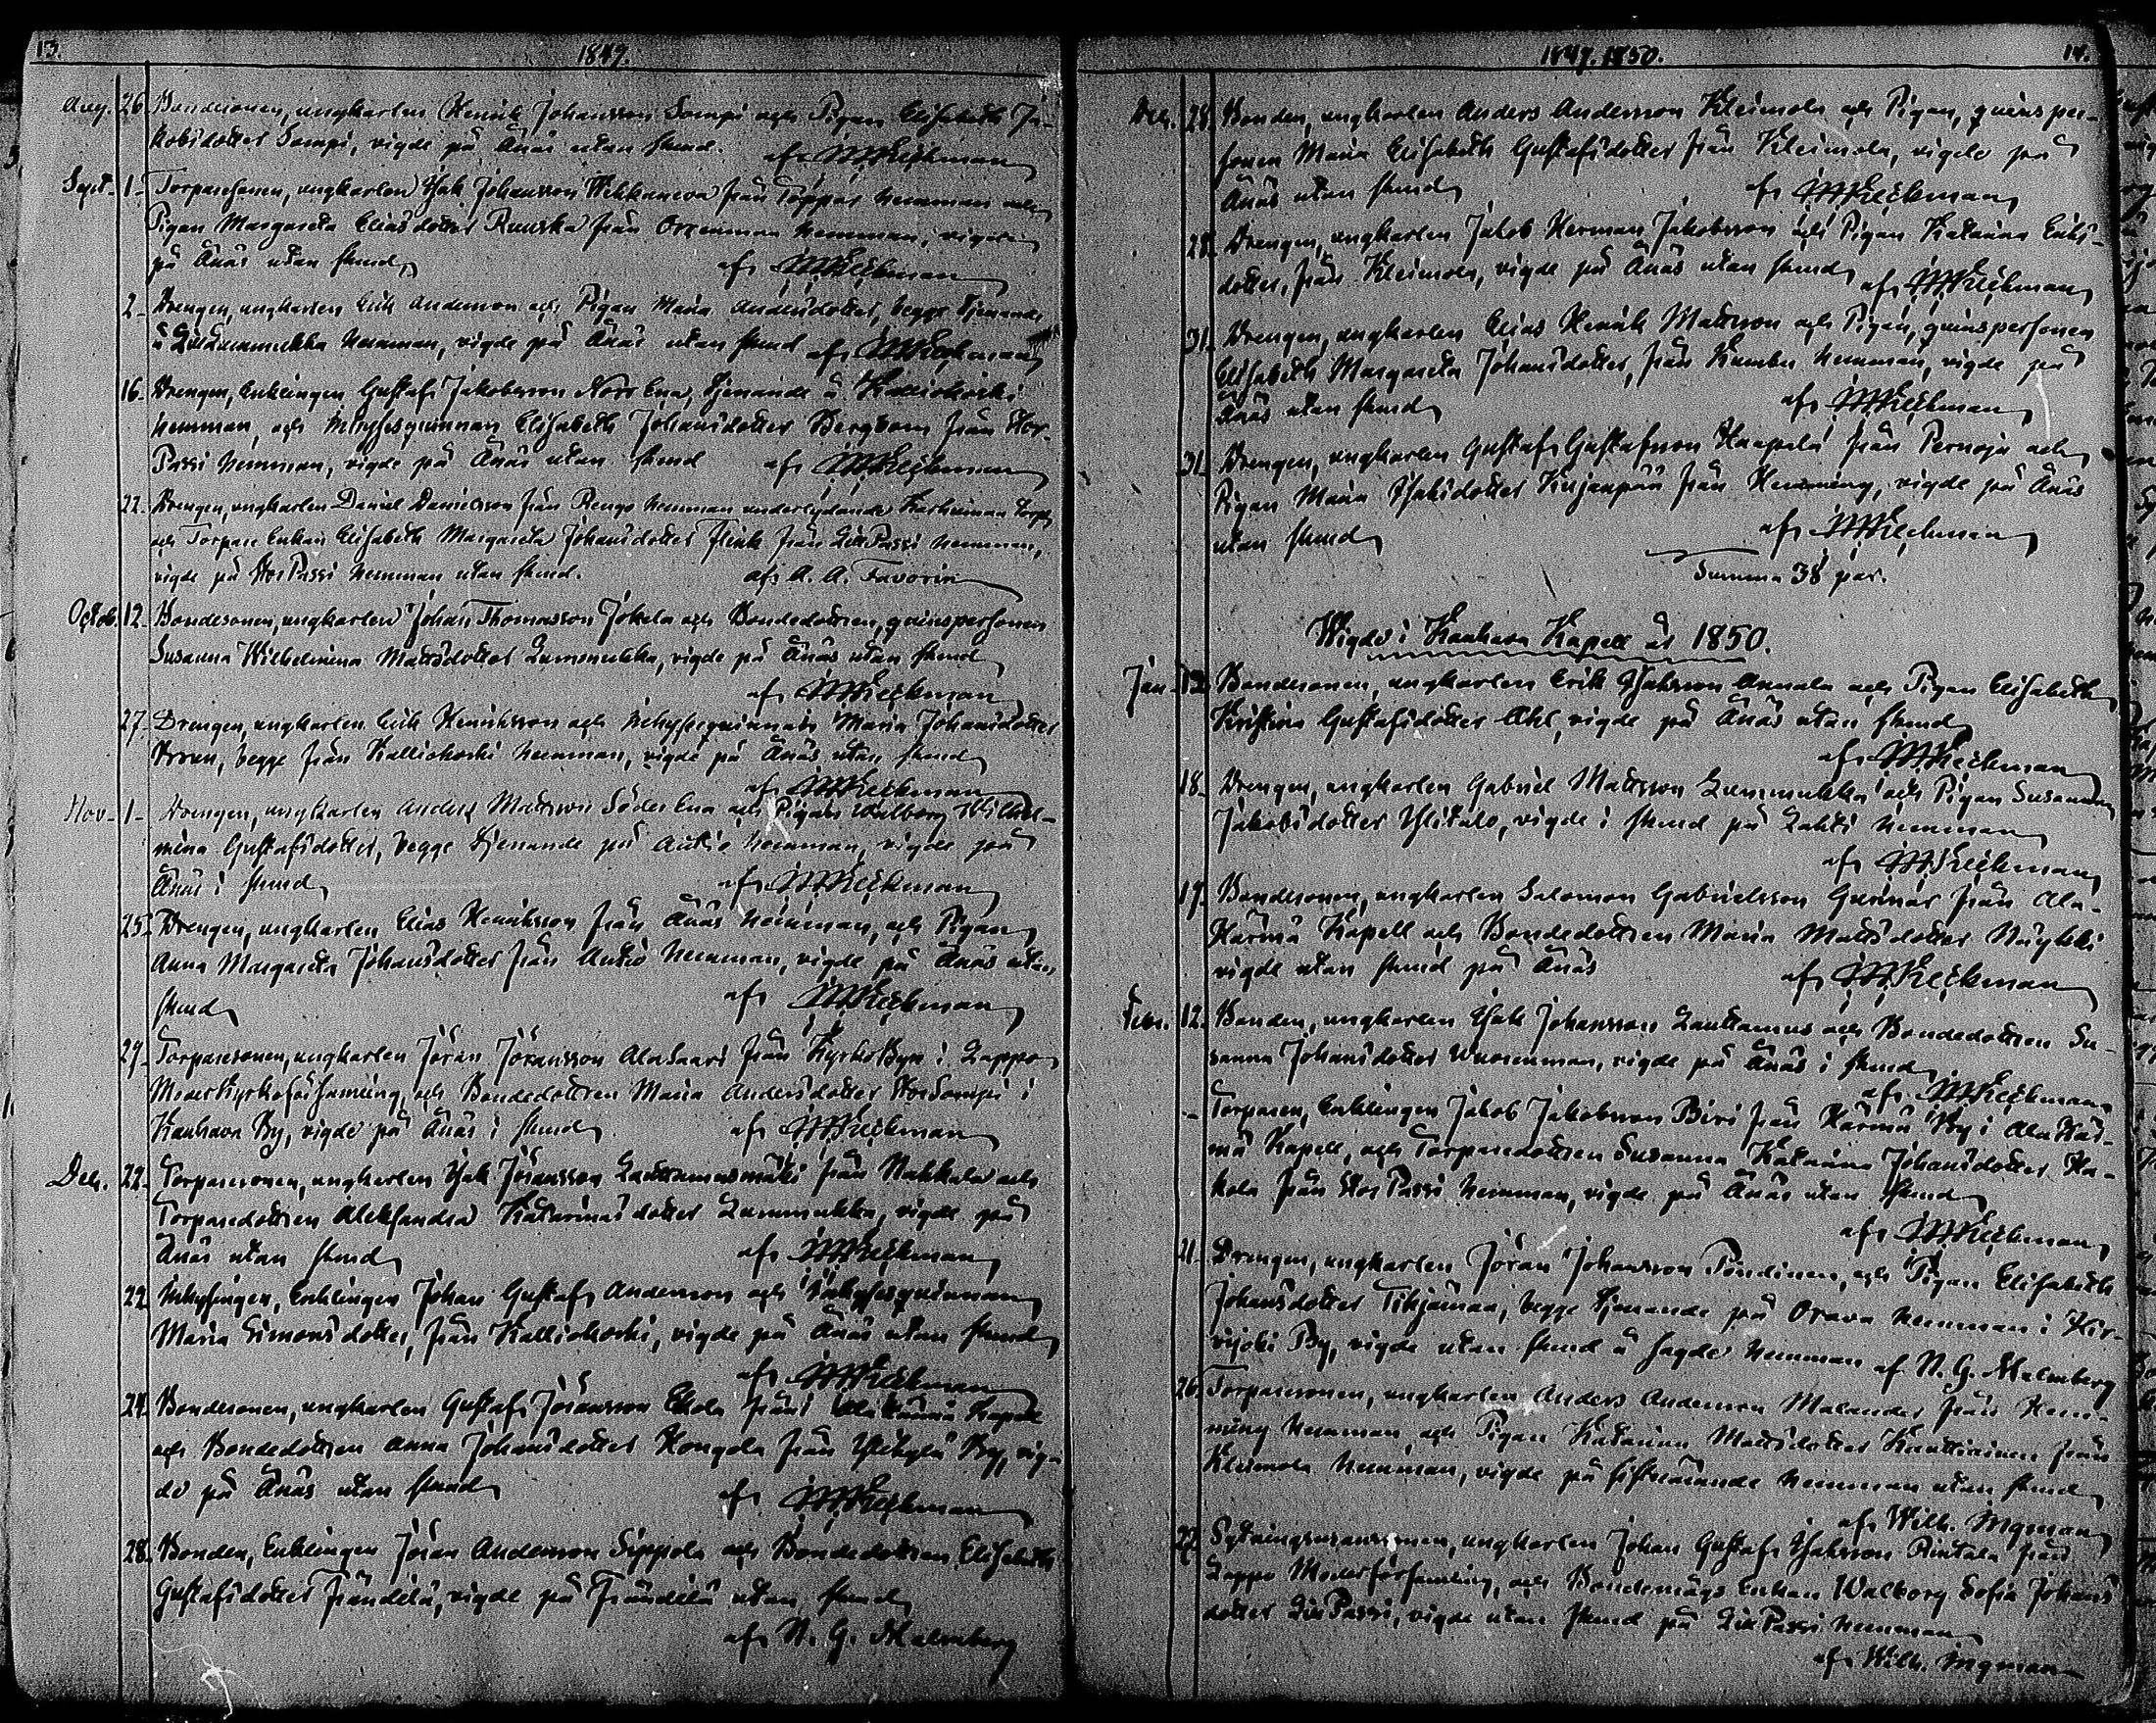 13.
1849.
Aug. 26. Bondesonen, ungkarlen Henrik Johansson Sompi och Pigan Elisabeth Ja-
kobsdotter Sompi, vigde på Änäs utan stund.
af
Sept. 1. Torparesonen, ungkarlen Isak Johansson från Töppär Hemman och
Pigan Margareta Eliasdotter Ruuska från Hemman, vigde
på Änäs utan stund,
af
2. Drengen, ungkarlen Erik Andersson och Pigan Maria Andersdotter, begge tjenande
å Hemman, vigde på Änäs utan stund af
16. Drengen, Enklingen Gustaf Jakobsson Norr Ena, tjenande å Kalliokoski
hemman, och Inhysesqvinnan Elisabeth Johansdotter Bergbom från Stor-
Passi Hemman, vigde på Änäs utan stund af
22. Drengen, ungkarlen Daniel Danielsson från Rengo Hemman underlydande Torp,
och Torpare Enkan Elisabeth Margareta Johansdotter Flink från Lill Passi Hemman,
vigde på Stor Passi Hemman utan stund. af A. A. Favorin
Octob. 12. Bondesonen, ungkarlen Johan Thomasson Jokela och Bondedottren, qvinspersonen
Susanna Wilhelmina Mattsdotter Lummukka, vigde på Änäs utan stund
af
27. Drengen, ungkarlen Erik Henriksson och Inhysesqvinnan Maria Johansdotter
begge från Kalliokoski Hemman, vigde på Änäs utan stund
af
Nov. 1. Drengen, ungkarlen Anders Mattsson Söder Ena och Pigan Walborg Wilhel-
mina Gustafsdotter, begge tjenande på Antio Hemman, vigde på
Änäs i stund,
af
25. Drengen, ungkarlen Elias Henriksson från Änäs Hemman, och Pigan
Anna Margareta Johansdotter från Antio Hemman, vigde på Änäs utan
stund
af
29. Torparesonen, ungkarlen Jöran Jöransson Alasaari från KyrkoByn i Lappo
ModerKyrkoförsamling, och Bondedottren Maria Andersdotter Stor Sompi i
Kauhava By, vigde på Änäs i stund
af
Dec. 22. Torparesonen, ungkarlen Isak Jöransson Lauttamusmäki från Nahkala och
Torparedottren Aleksandra Katarinasdotter Lummukka, vigde på
Änäs utan stund
af
22. Inhysingen, Enklingen Johan Gustaf Andersson och Inhysesqvinnan
Maria Simonsdotter, från Kalliokoski, vigde på Änäs utan stund
af
24. Bondesonen, ungkarlen Gustaf Jöransson Ekola från Kapell
och Bondedottren Anna Johansdotter Kongola från Ylikylä By, vig-
de på Änäs utan stund
af
28. Bonden, Enklingen Jöran Andersson Sippola och Bondedottren Elisabeth
Gustafsdotter Frändilä, vigde på Frändilä utan stund
af N. G. Malmberg
1849. 1850.
14.
Dec. 28. Bonden, ungkarlen Anders Andersson Kleimola och Pigan, qvinsper-
sonen Maria Elisabeth Gustafsdotter från Kleimola, vigde på
Änäs utan stund
af
28. Drengen, ungkarlen Jakob Herman Jakobsson och Pigan Katarina Eriks-
dotter, från Kleimola, vigde på Änäs utan stund
af
31. Drengen, ungkarlen Elias Henrik Mattsson och Pigan, qvinspersonen
Elisabeth Margareta Johansdotter, från Hemman, vigde på
Änäs utan stund
af
31. Drengen, ungkarlen Gustaf Gustafsson Haapala från Pernaja och
Pigan Maria Isaksdotter Kujanpää från Hemming, vigde på Änäs
utan stund
af
Summa 38 par.
Wigde i Kauhava Kapell år 1850.
Jan. 12. Bondesonen, ungkarlen Erik Isaksson Annala och Pigan Elisabeth
Kristina Gustafsdotter Ahl, vigde på Änäs utan stund
af
18. Drengen, ungkarlen Gabriel Mattsson Lummukka och Pigan Susanna
Jakobsdotter Ylitalo, vigde i stund på Lahti Hemman
af
19. Bondesonen, ungkarlen Salomon Gabrielsson från Ala-
Härmä Kapell och Bondedottren Maria Mattsdotter
vigde utan stund på Änäs
af
Febr. 12. Bonden, ungkarlen Isak Johansson Lauttamus och Bondedottren Su-
sanna Johansdotter Wuorenmaa, vigde på Änäs i stund
af
- Torparen, Enklingen Jakob Jakobsson Biri från Härmä By i Ala Här-
mä Kapell, och Torparedottren Susanna Katarina Johansdotter Ha-
kola från Stor Passi Hemman, vigde på Änäs utan stund
af
21. Drengen, ungkarlen Jöran Johansson Pöndinen, och Pigan Elisabeth
Johansdotter Tikjämaa, begge tjenande på Orava Hemman i Hir-
vijoki By, vigde utan stund å sagde Hemman af N. G. Malmberg
26. Torparesonen, ungkarlen Anders Andersson Malander från Hem-
ming Hemman, och Pigan Katarina Mattsdotter Kauttiainen från
Kleimola Hemman, vigde på sistnämnde Hemman utan stund
af Wilh. Ingman
27. ungkarlen Johan Gustaf Isaksson Rintala från
Lappo Moderförsamling, och Bondemågs Enkan Walborg Sofia Johans-
dotter Lill Passi, vigde utan stund på Lill Passi Hemman
af Wilh. Ingman